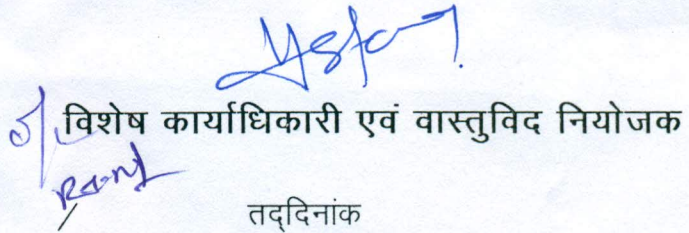 विशेष कार्याधिकारी एवं वास्तुविद नियोजक
तद्दिनांक